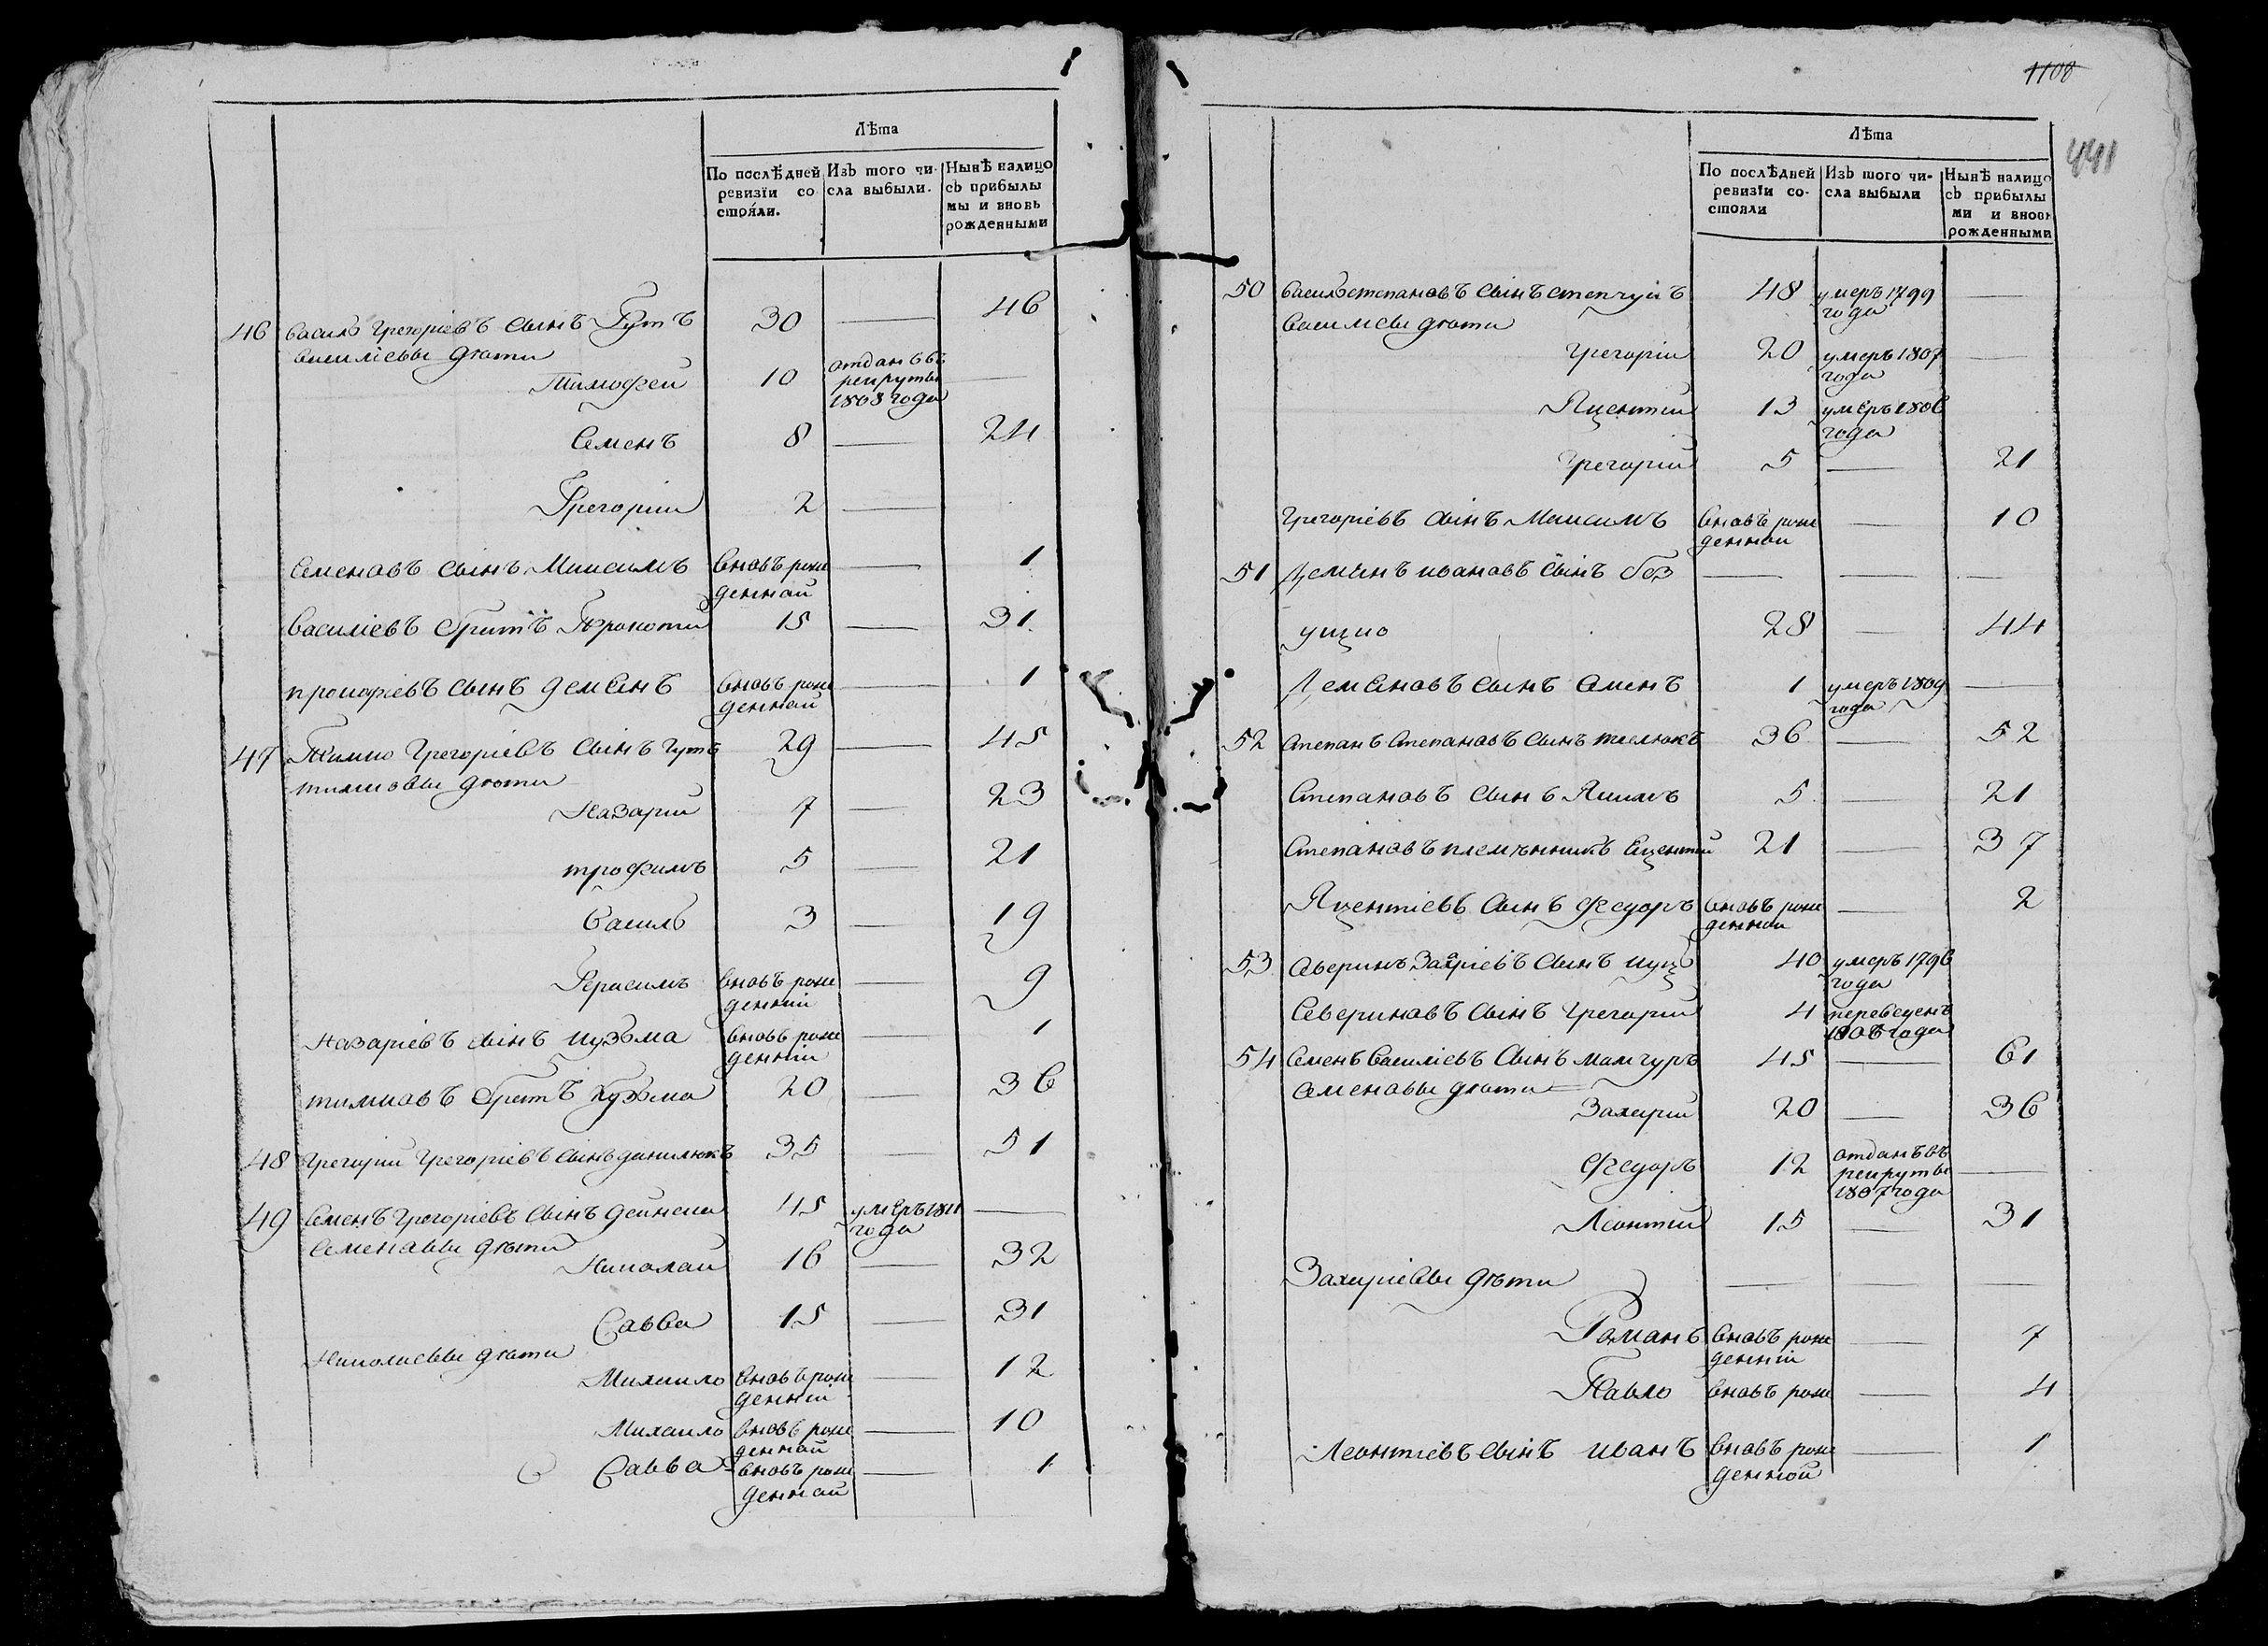 Лѣта
По послѣдней ревизїи состояли.
Изъ того числа выбыли.
Нынѣ налицо съ прибылымы и вновь рожденными
46 Василь Григорiевъ сынъ Гутъ 30 — 46
Василiевы дѣти
Тимофей 10 отданъ въ рекруты 1808 года —
Семенъ 8 — 24
Григорiй 2 —
Семеновъ сынъ Максимъ вновъ рожденной — 1
Василiевъ братъ Прокопiй 15 — 31
Прокофiевъ сынъ демянъ вновъ рожденной — 1
47 Тимко Григорiевъ сынъ гутъ 29 — 45
тимковы дѣти
Назарiй 7 — 23
трофимъ 5 — 21
Василь 3 — 19
Герасимъ вновъ рожденнiй — 9
Назарiевъ сынъ кузьма вновъ рожденнiй — 1
тимковъ братъ Кузьма 20 — 36
48 Григорiй Григорiевъ сынъ данилюкъ 35 — 51
49 Семенъ Григорiевъ сынъ дейнека 45 умеръ 1811 года —
Семеновы дѣти
Николай 16 — 32
Савва 15 — 31
Николаевы дѣти
Михаило вновъ рожденнiй — 12
Михаило вновъ рожденной — 10
Савва вновъ рожденной — 1
1100
441
Лѣта
По послѣдней ревизїи состояли
Изъ того числа выбыли
Нынѣ налицо съ прибылыми и вновь рожденными
50 Василь степановъ сынъ 48 умеръ 1799 года —
Василевы дѣти
Григорiй 20 умеръ 1807 года —
Яцентiй 13 умеръ 1806 года
Григорiй 5 — 21
Григорiевъ сынъ Максимъ вновъ рожденной — 10
51 Демянъ ивановъ сынъ без — — —
ущко 28 — 44
Демяновъ сынъ Семенъ 1 умеръ 1809 года —
52 Степанъ Степановъ сынъ 36 — 52
Степановъ сынъ Якимъ 5 — 21
Степановъ племѣнникъ Яцентiй 21 — 37
Яцентiевъ сынъ Федоръ вновъ рожденной — 2
53 Северинъ Захарiевъ сынъ куцъ 40 умеръ 1796 года
Севериновъ сынъ Григорiй 4 переведенъ 1808 года
54 Семенъ Василiевъ сынъ мамчуръ 45 — 61
Семеновы дѣти
Захарiй 20 — 36
Федоръ 12 отданъ въ рекруты 1807 года —
Леонтiй 15 — 31
Захарiевы дѣти — — —
Романъ вновъ рожденнiй — 7
Павло вновъ рож — 4
Леонтiевъ сынъ иванъ вновъ рожденной — 1